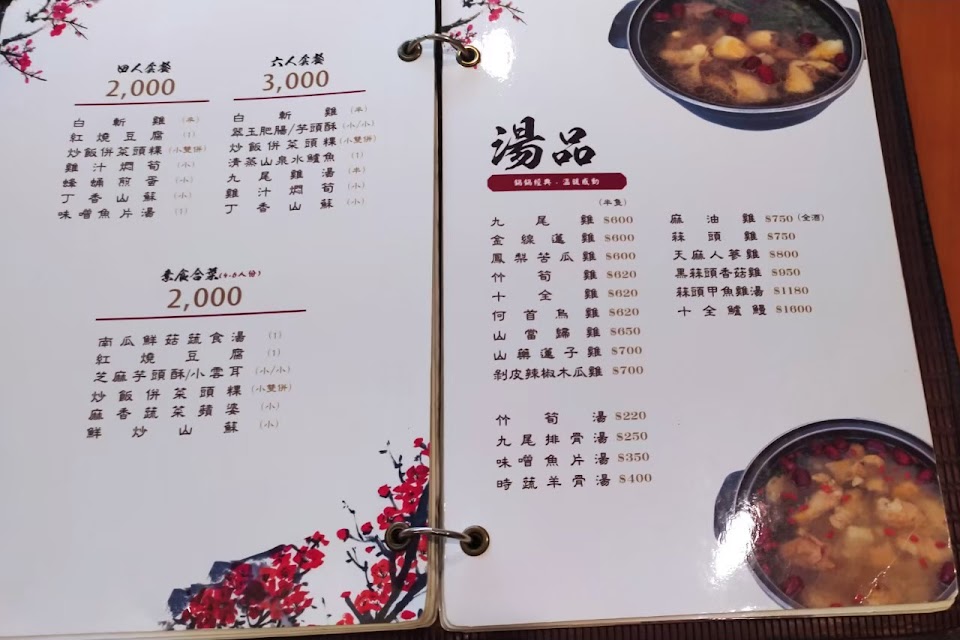 四人套餐
2,000
白斬雞 (半)
紅燒豆腐 (1)
炒飯併菜頭粿 (小雙併)
雞汁燜筍 (小)
蜂蛹煎蛋 (小)
丁香山蘇 (小)
味噌魚片湯 (1)
六人套餐
3,000
白斬雞 (半)
翠玉肥腸/芋頭酥 (小/小)
炒飯併菜頭粿 (小雙併)
清蒸山泉水鱸魚 (1)
九尾雞湯 (半)
雞汁燜筍 (小)
丁香山蘇 (小)
素食合菜(4-6人份)
2,000
南瓜鮮菇蔬食湯 (1)
紅燒豆腐 (1)
芝麻芋頭酥/小雲耳 (小/小)
炒飯併菜頭粿 (小雙併)
麻香蔬菜蘋婆 (小)
鮮炒山蘇 (小)
湯品
鍋鍋經典．溫暖感動
(半隻)
九尾雞 $600
金線蓮雞 $600
鳳梨苦瓜雞 $600
竹筍雞 $620
十全雞 $620
何首烏雞 $620
山當歸雞 $650
山藥蓮子雞 $700
剝皮辣椒木瓜雞 $700
竹筍湯 $220
九尾排骨湯 $250
味噌魚片湯 $350
時蔬羊骨湯 $400
麻油雞 $750 (全酒)
蒜頭雞 $750
天麻人蔘雞 $800
黑蒜頭香菇雞 $950
蒜頭甲魚雞湯 $1180
十全鱸鰻 $1600